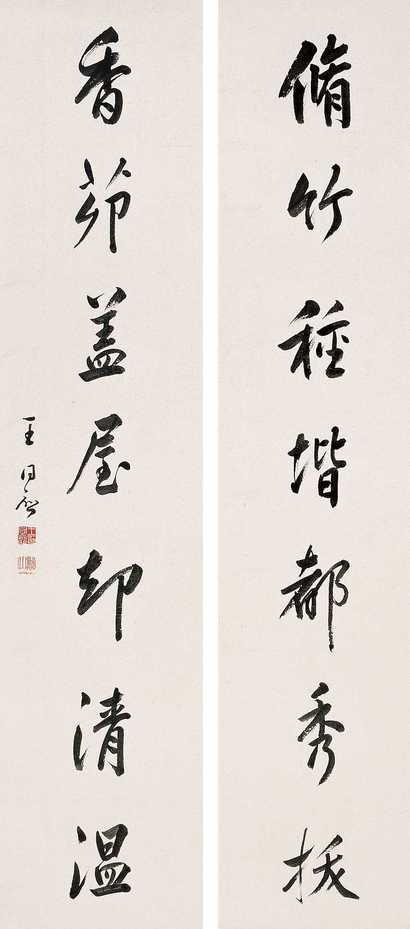 脩竹種堦都秀拔
香茆盖屋却清温
王同愈